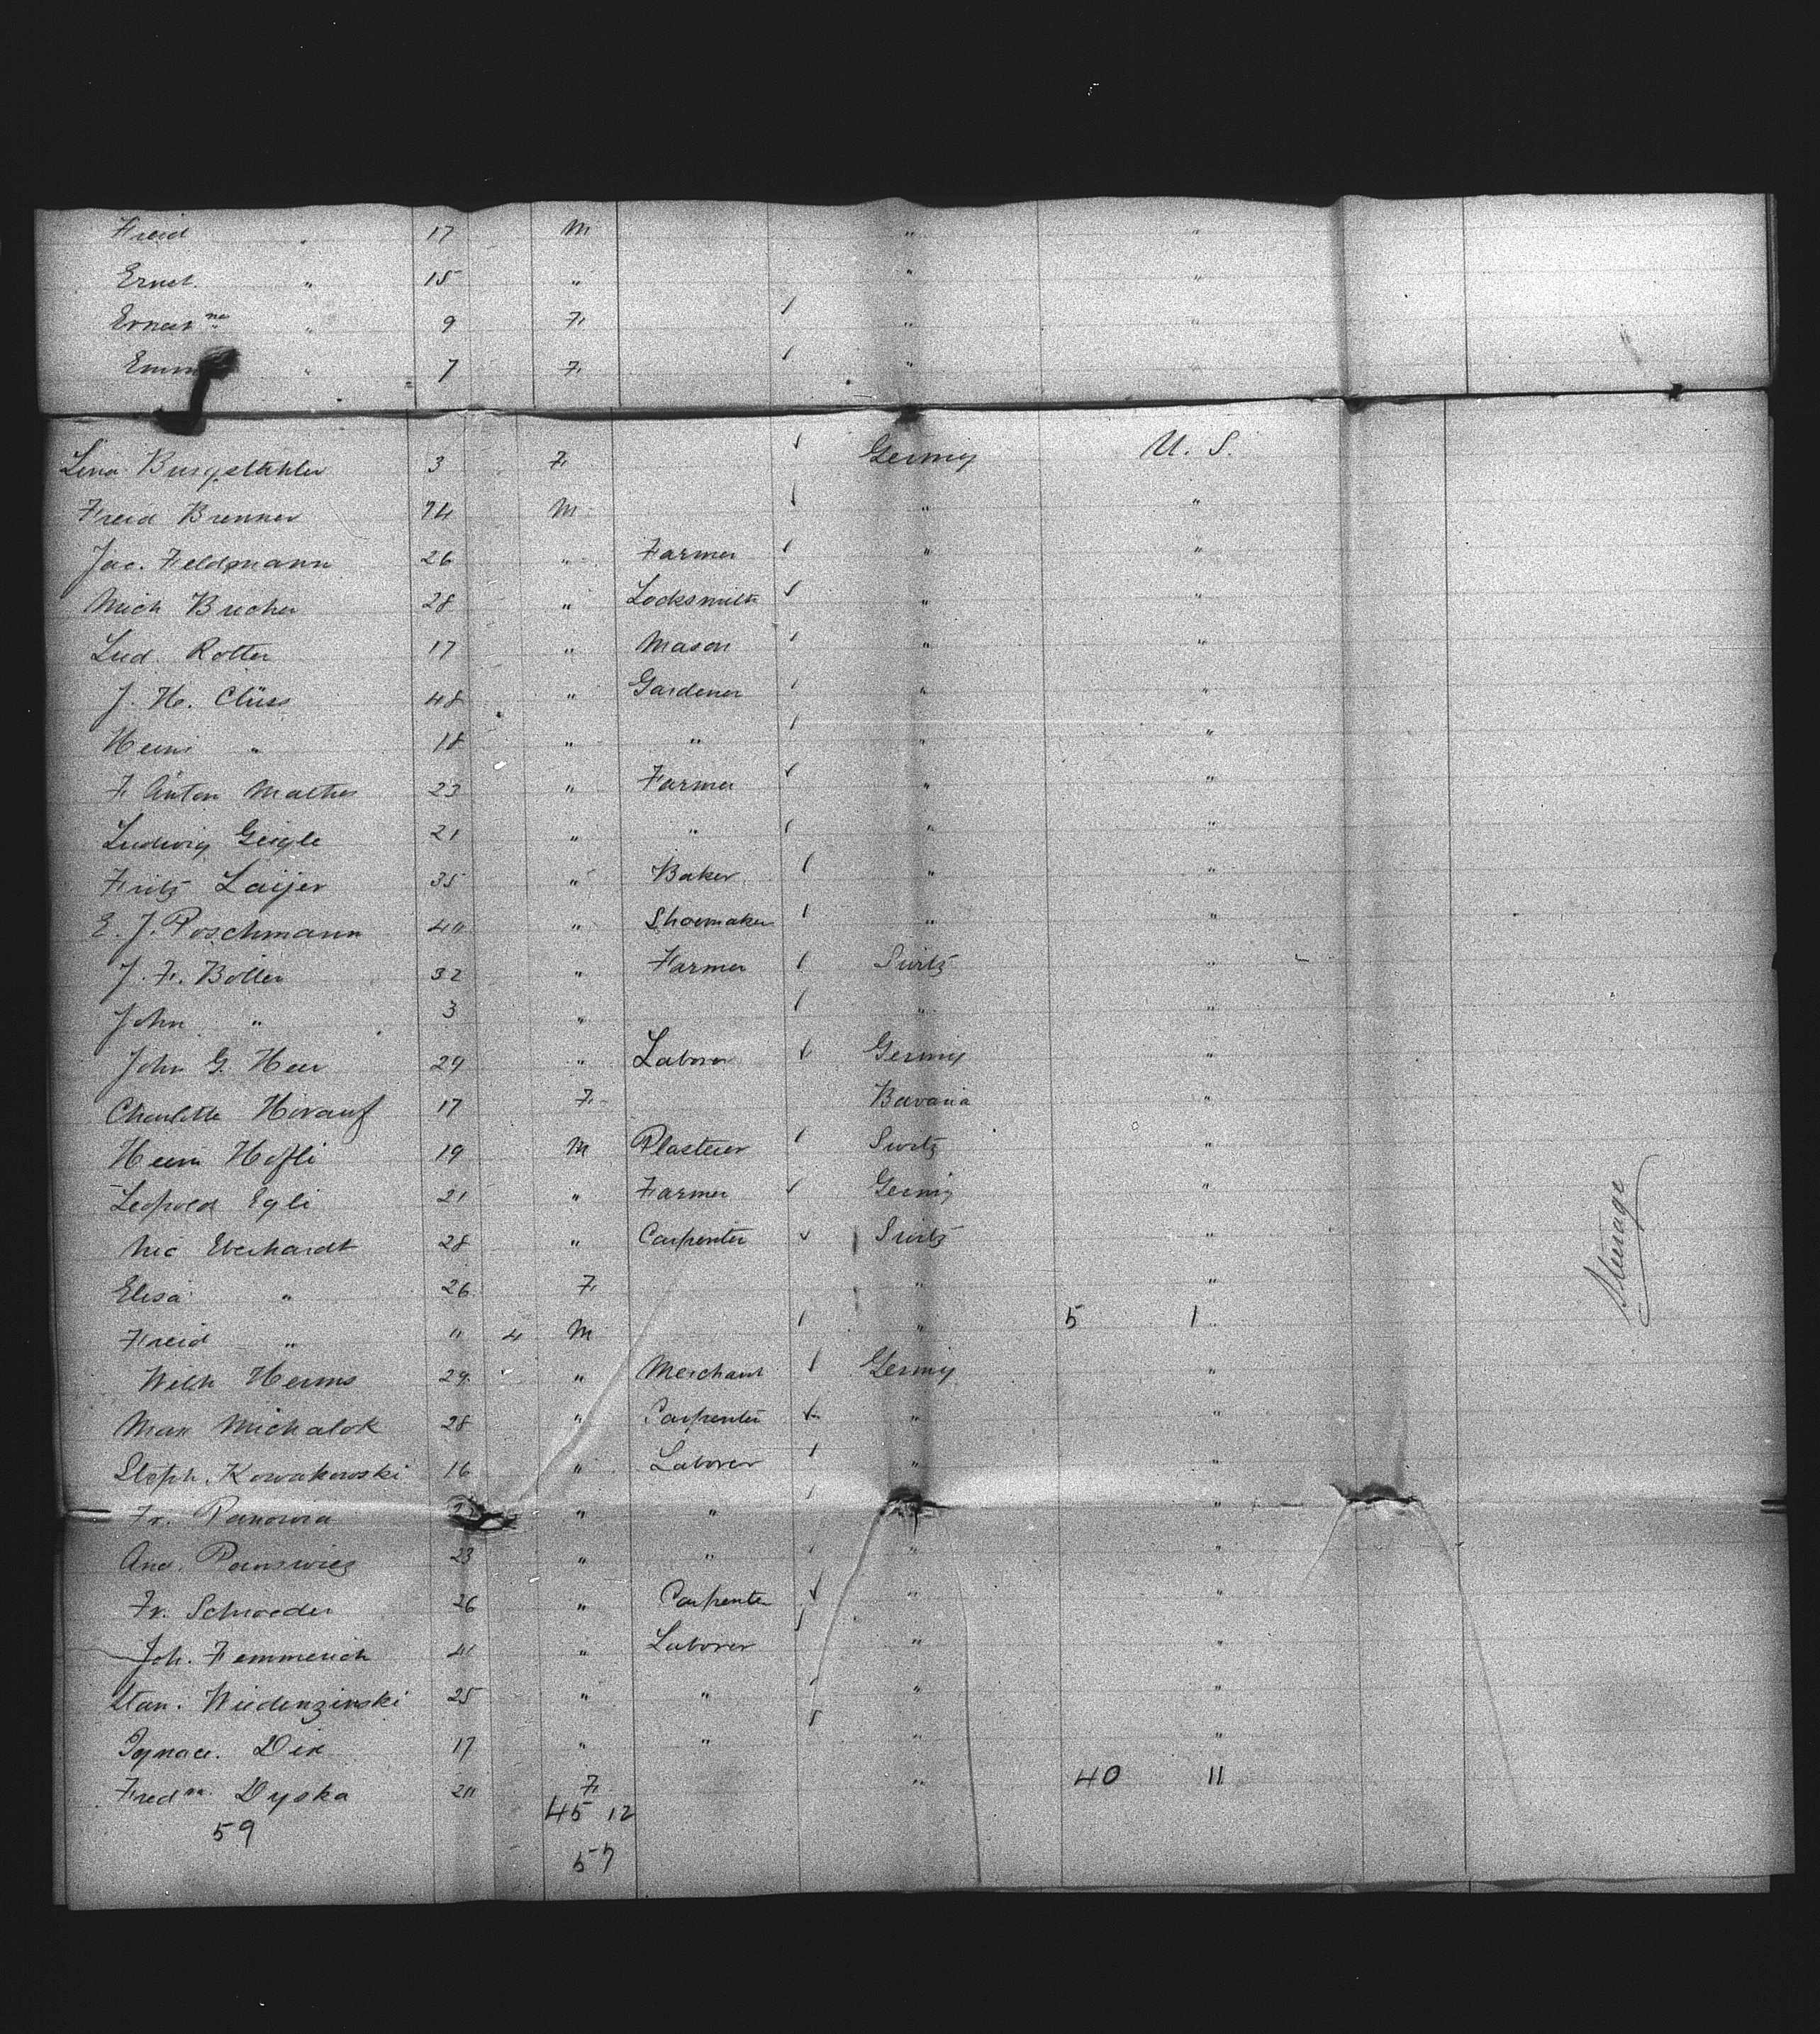 Freid " 17 M " "
Ernst " 15 " " "
Ernest ne " 9 F " "
Emma " 7 F "
Lina Burgstahler 3 F Germy U. S.
Freid Brenner 24 M " "
Jac. Feldmann 26 " Farmer " "
Mich Bucher 28 " Locksmith " "
Lud. Rotter 17 " Mason " "
J. H. Clüss 48 " Gardener " "
Heinr " 18 " " " "
F. Anton Mathes 23 " Farmer " "
Ludwig Geigle 21 " " " "
Fritz Laijer 35 " Baker " "
E. J. Poschmann 40 " Shoemaker " "
J. F. Boller 32 " Farmer Switz "
John " 3 " " "
John G. Heer 29 " Laborer Germy "
Charlotte Horauf 17 F Bavaria "
Heinr Hofli 19 M Plasterer Switz "
Leopold Egli 21 " Farmer Germy "
Nic Eberhardt 28 " Carpenter Switz "
Elisa " 26 F " "
Freid " " 4 M " 5 1
Wilh Herms 29 " Merchant Germy "
Max Michalok 28 " Carpenter " "
Steph. Kowakowski 16 " Laborer " "
Fr. Panowia " " "
And. 23 " " " "
Fr. Schroeder 26 " Carpenter " "
Joh. Femmerich 41 " Laborer " "
Stan. Wiedenzinski 25 " " " "
Ignace. Dix 17 " " " "
Fred na. Dyska 20 F " 40 11
59 45 12
57
Steerage